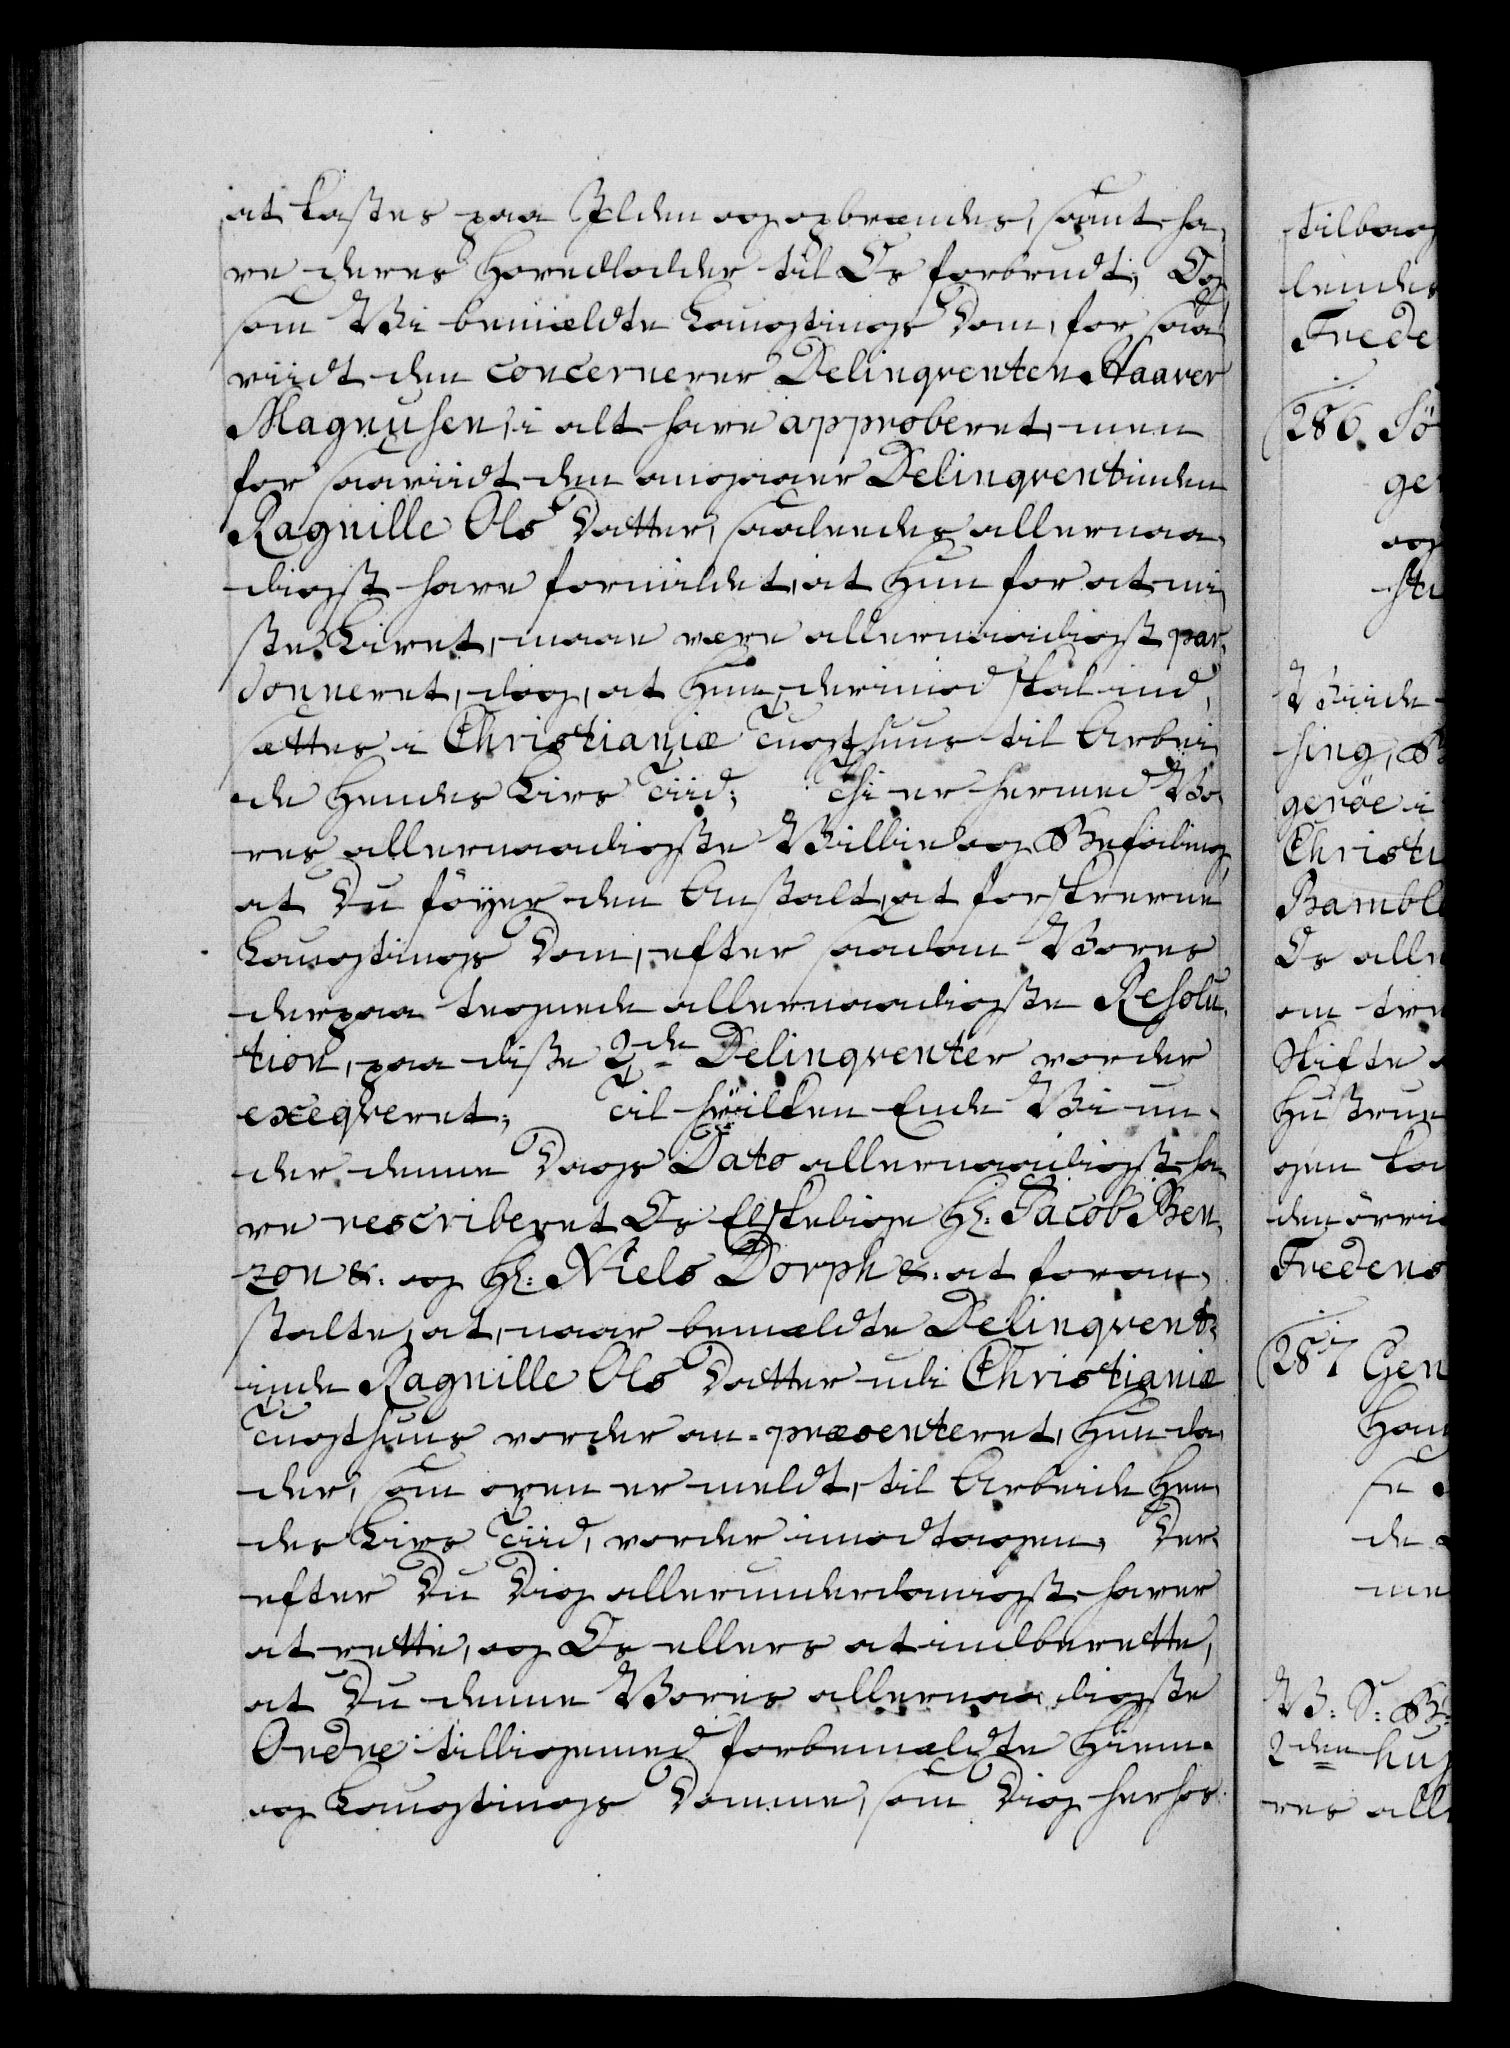 at kastes paa Ilden og opbrændes, samt ha,
ve deres Hovedlodder til Os forbrudt, Og
som Vi bemældte Laugtings Dom, for saa
viidt den concernerer Delinqventen Haaver
Magnusen, i alt have approberet, men
for saaviidt den angaaer Delinqventinden
Ragnille Ols Datter, saaledes allernaa,
digst have formildet, at Hun for at mi,
ste Livet, maae være allernaadigst par,
donneret, dog, at Hun derimod skal ind,
sættes i Christianiæ Tugthuus til Arbei,
de Hendes Livs Tiid; Thi er hermed Vo,
res allernaadigste Villie og Befaling,
at Du föyer den Anstalt, at forskrevne
Laugtings Dom, efter saadan Vores
derpaa tegnede allernaadigste Resolu,
tion, paa disse 2de Delinqventer vorder
exeqveret; Til hvilken Ende Vi un,
der denne Dags Dato allernaadigst ha,
ve rescriberet Os Elskelige Hr: Jacob Ben,
zon &: og Hr: Niels Dorph &: at foran,
stalte, at, naar bemældte Delinqvent,
inde Ragnille Ols Datter udi Christianiæ
Tugthuus vorder an-præsenteret, Hun da
der, som oven er meldt, til Arbeide Hen,
des Livs Tiid, vorder imodtagen, Der,
efter Du Dig allerunderdanigst haver
at rette, og Os ellers at indberette,
at Du denne Vores allernaadigste
Ordre tilligemed forbemældte Hiem-
og Laugtings Domme, som Dig herhos
tilbag
lendes
Frede
286. Sö
ge
og
Viide
sing, B
geröe i
Christi
Bambl
Os alle
om tre
Skifte
Hustrue
gen ka
den övri
Fredens
287 Gen
Han
de
me
V: S: B:
2den huj
res alle